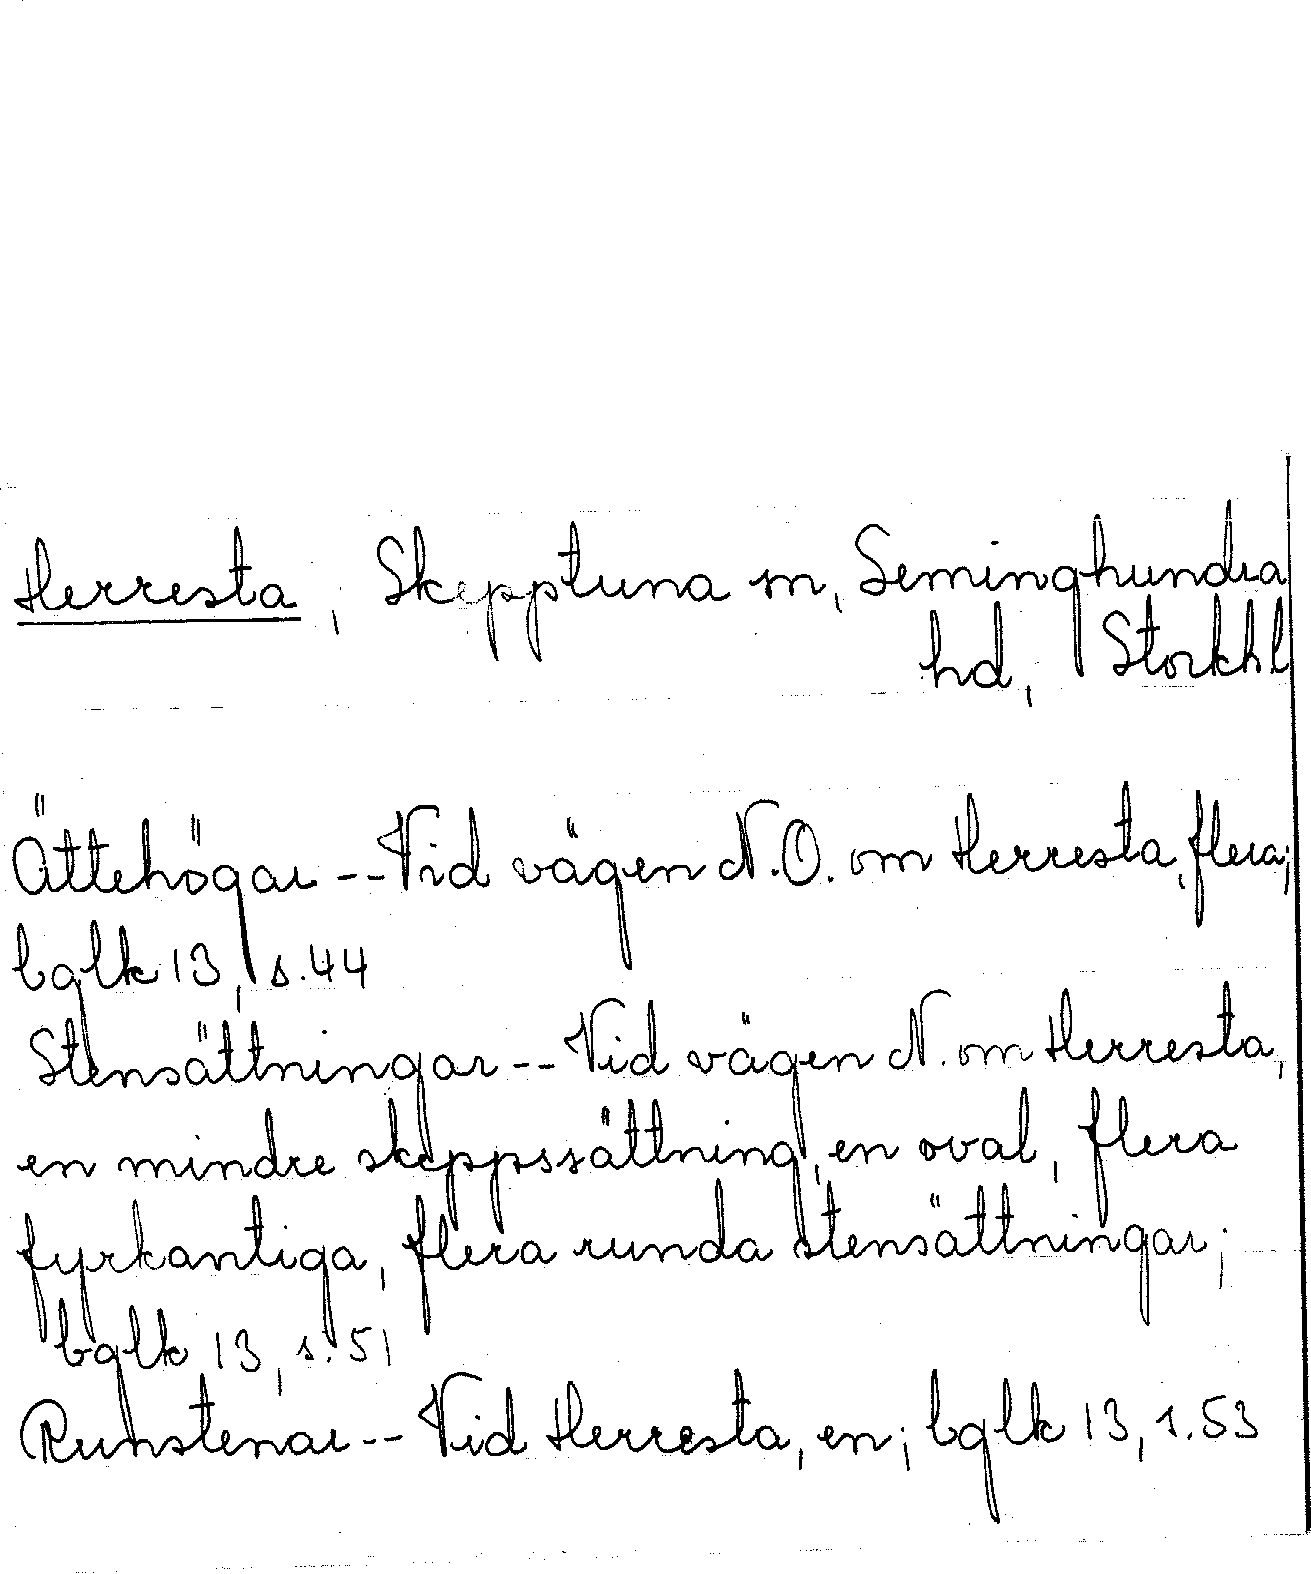 Herresta, Skepptuna sn, Seminghundra
hd, Storkhl
Ättehögar -- Vid vägen N.O. om Herresta, flera;
bglk 13, s. 44
Stensättningar -- Vid vägen N. om Herresta,
en mindre skeppssättning, en oval, flera
fyrkantiga, flera runda stensättningar;
bglk 13, s. 51
Runstenar -- Vid Herresta, en; bglk 13, s. 53